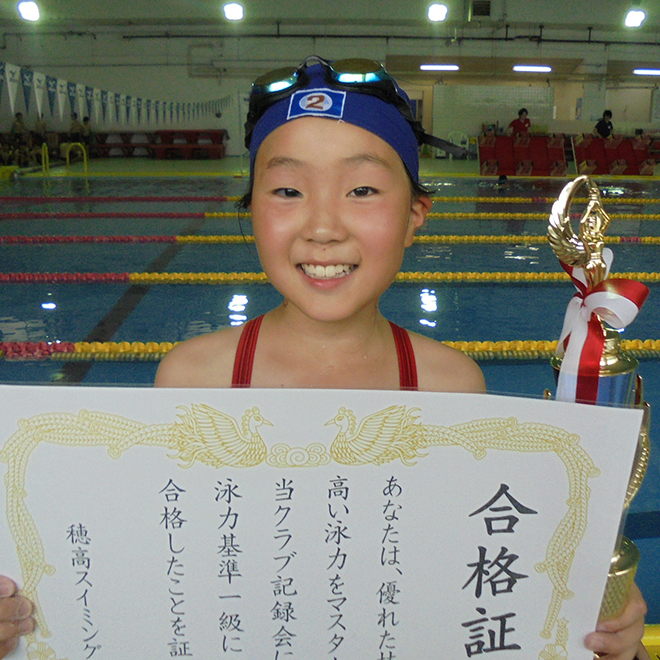 合格証
あなたは、優れた
高い泳力をマスタ
当クラブ記録会に
泳力基準一級に
合格したことを証
穂高スイミング
2